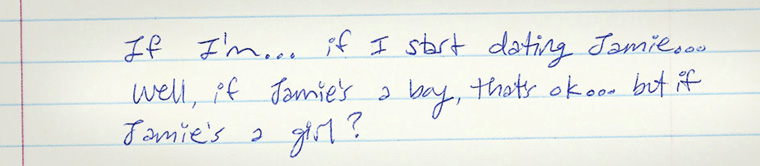 If I'm... if I start dating Jamie...
well, if Jamie's a boy, that's ok... but if
Jamie's a girl?